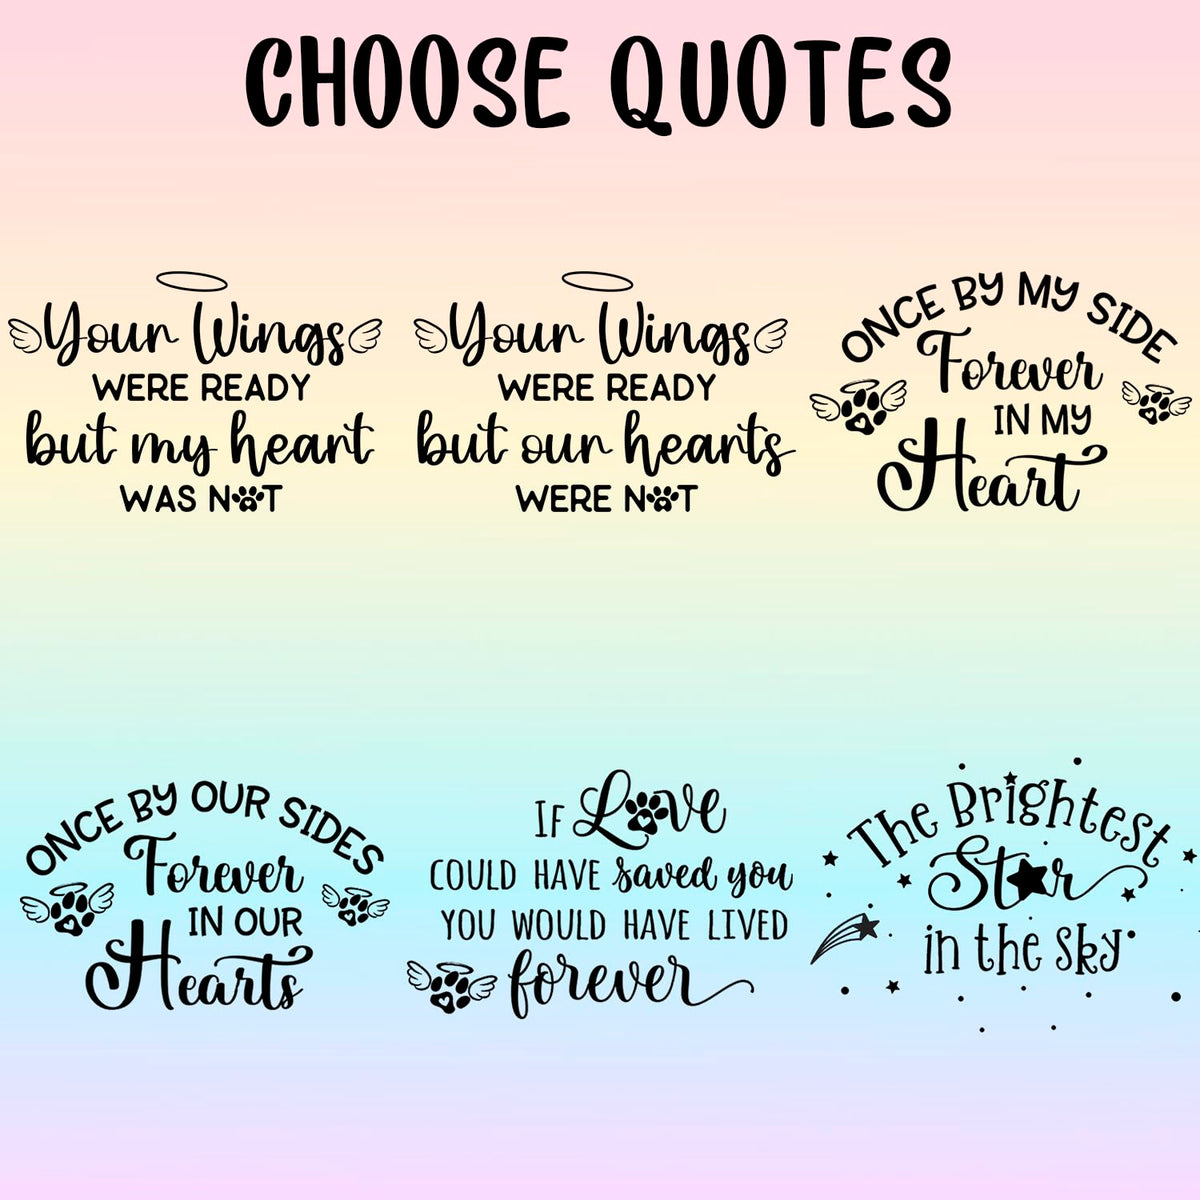 CHOOSE QUOTES
Your Wings
WERE READY
but my heart
WAS NOT
Your Wings
WERE READY
but our hearts
WERE NOT
ONCE BY MY SIDE
Forever
IN MY
Heart
ONCE BY OUR SIDES
Forever
IN OUR
Hearts
IF Love
COULD HAVE saved you
YOU WOULD HAVE LIVED
forever
The Brightest
Star
in the sky